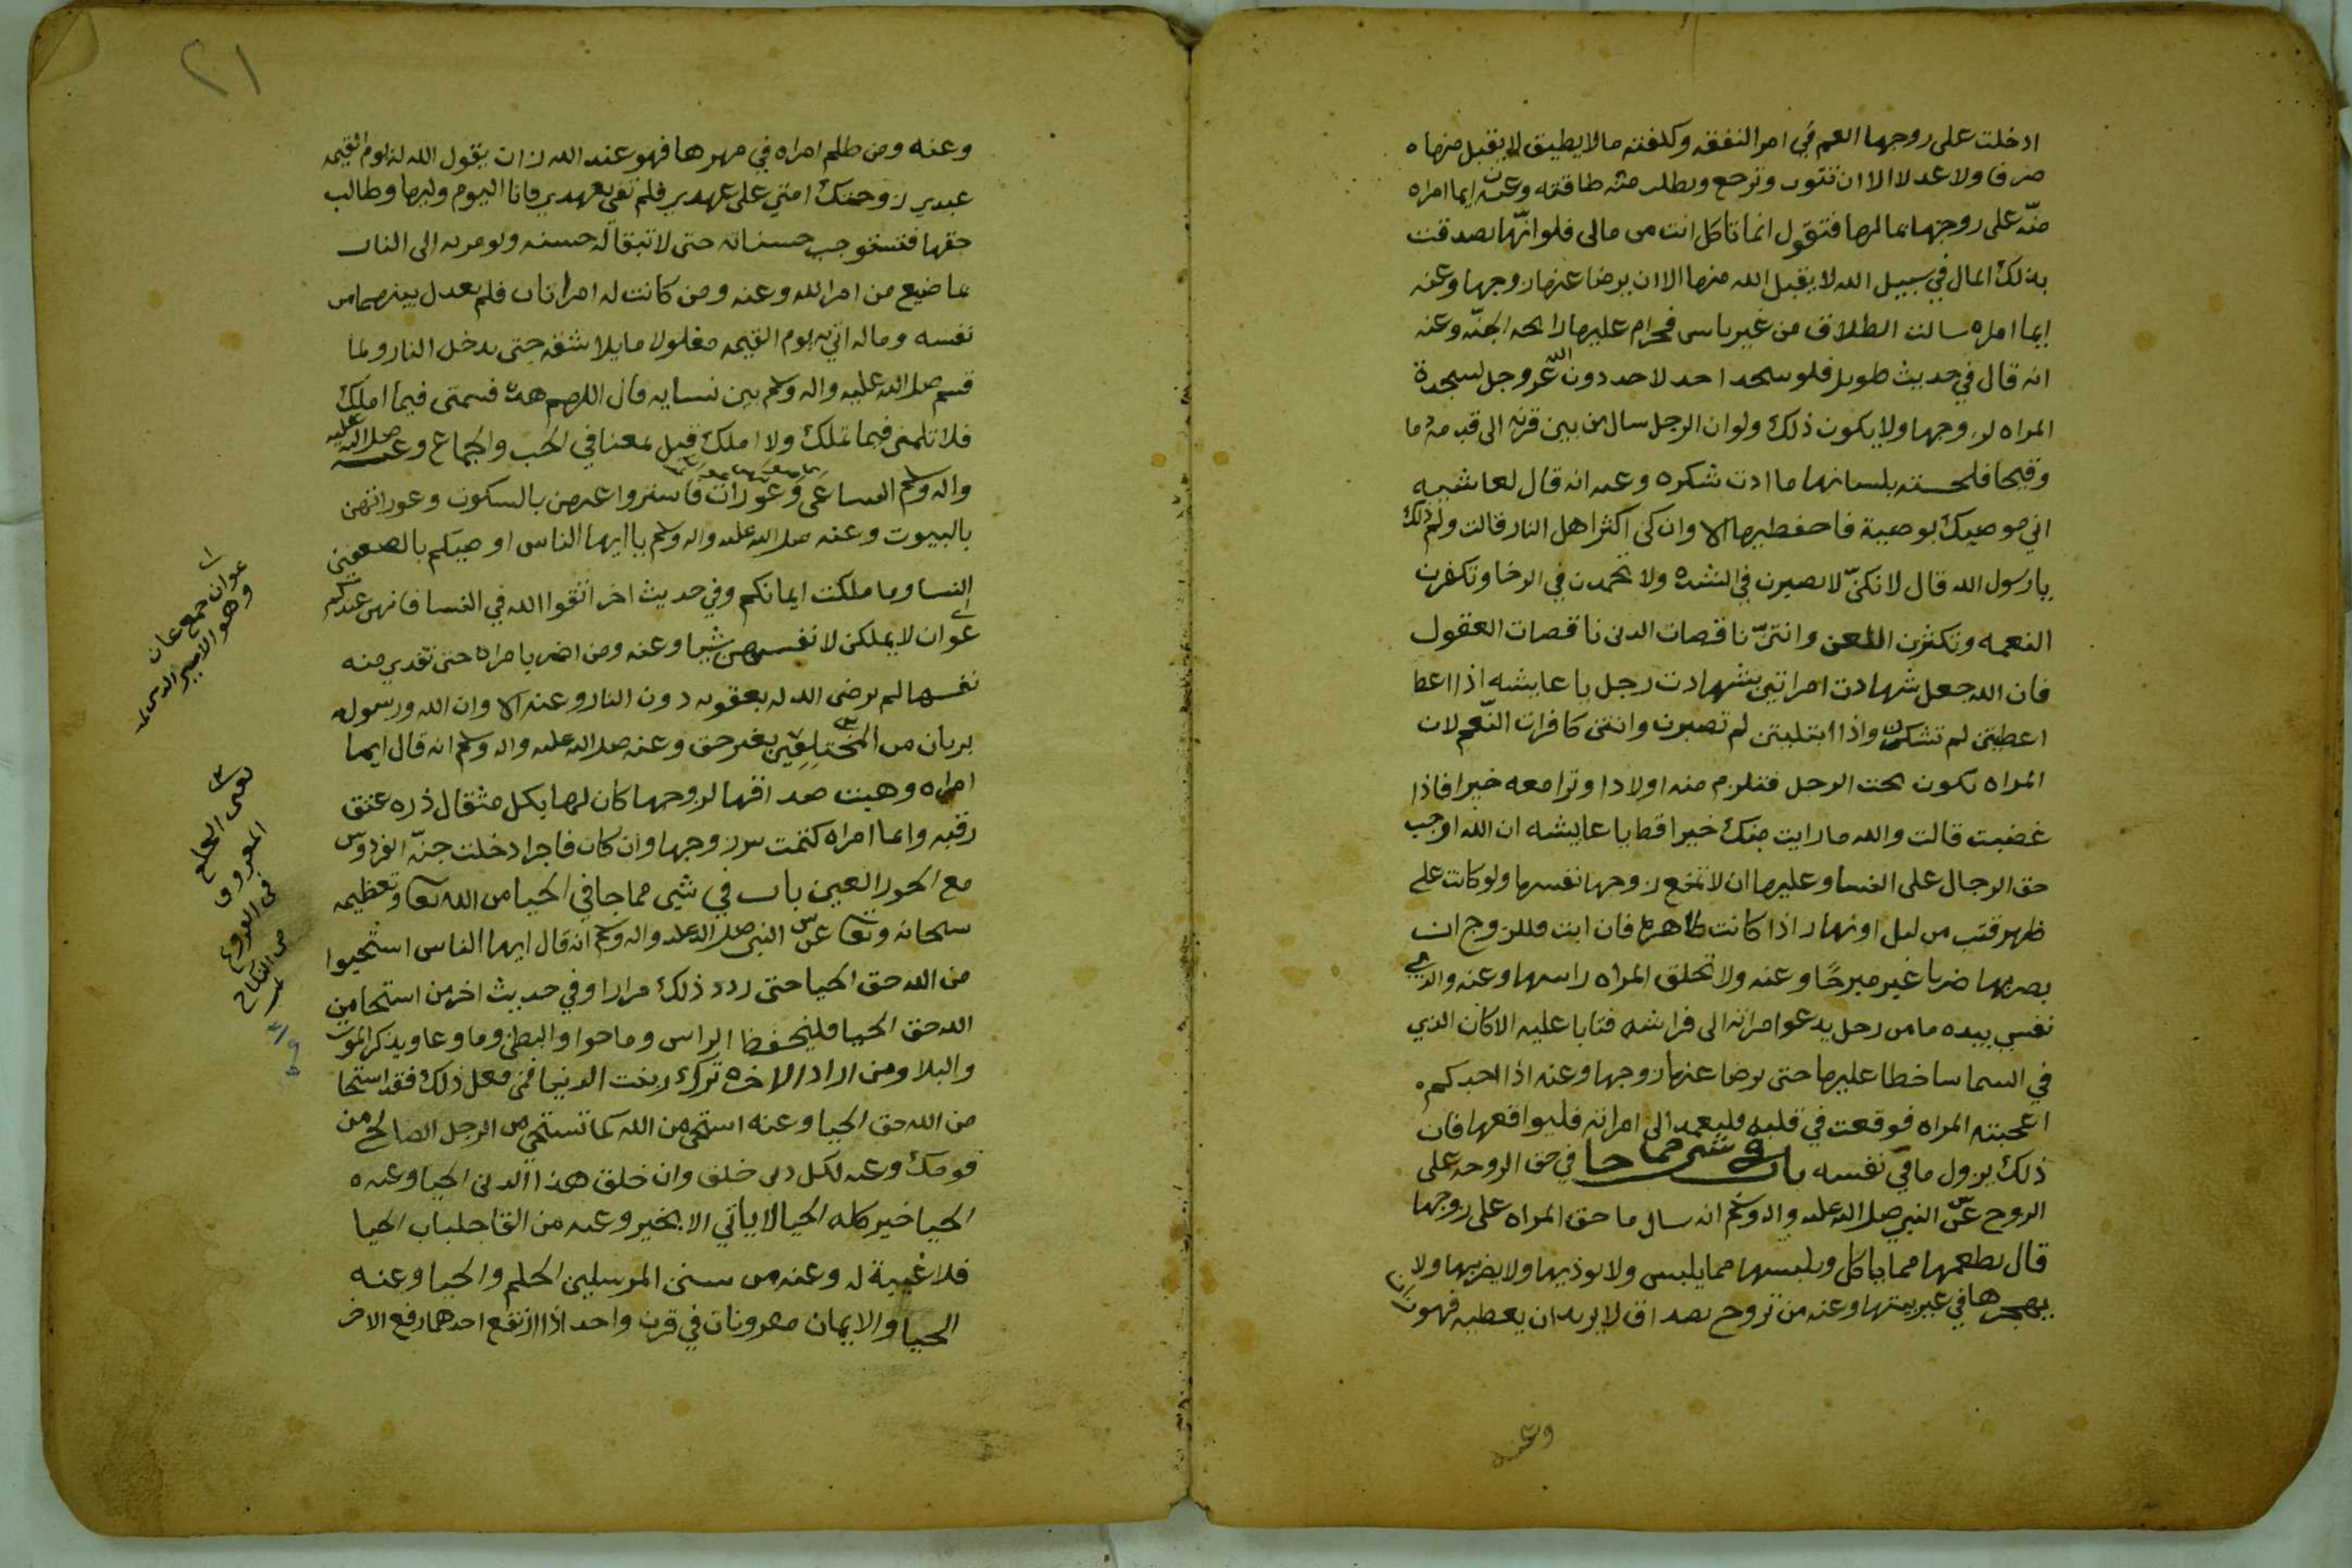 ادخلت على زوجها الغم في امر النفقه وكلفته مالا يطيق لا يقبل منها
صرفا ولا عدلا الا ان تتوب وترجع وتطلب منه طاقته وعنه ايما امراه
منّه على زوجها بمالها فتقول انما تاكل انت من مالى فلو انّها تصدقت
بذلك المال في سبيل الله لا يقبل الله منها الا ان يرضا عنها زوجها وعنه
ايما امراه سالت الطلاق من غير باس فحرام عليها رائحه الجنّه وعنه
انه قال في حديث طويل فلو سجد احد لاحد دون الله عز وجل لسجدة
المراه لزوجها ولا يكون ذلك ولو ان الرجل سال من بين قرنه الى قدمه دما
وقيحا فلحسته بلسانها ما ادت شكره وعنه انه قال لعائشه
اني موصيك بوصية فاحفظيها الا وان كن اكثر اهل النار قالت ولم ذلك
يا رسول الله قال لانكنّ لا تصبرن في الشده ولا تحمدن في الرخا وتكفرن
النعمه وتكثرن اللعن وانتنّ ناقصات الدين ناقصات العقول
فان الله جعل شهادت امراتين بشهادت رجل يا عايشه اذا اعطا
اعطيتن لم تشكرن واذا ابتليتن لم تصبرن وانتن كافرات النّعم لان
المراه تكون تحت الرجل فتلزم منه اولادا وترا معه خيرا فاذا
غضبت قالت والله ما رايت منك خيرا قط يا عايشه ان الله اوجب
حق الرجال على النسا وعليها ان لا تمنع زوجها نفسها ولو كانت على
ظهر قتب من ليل او نهار اذا كانت طاهره فان ابت فللزوج ان
يضربها ضربا غير مبرحًا وعنه ولا تحلق المراه راسها وعنه والذي
نفسي بيده ما من رجل يدعو امراته الى فراشه فتابا عليه الا كان الذي
في السما ساخطا عليها حتى يرضا عنها زوجها وعنه اذا احدكم
اعجبته المراه فوقعت في قلبه فليعمد الى امراته فليواقعها فان
ذلك يزول ما في نفسه باب في شي مما جا في حق الزوجه على
الزوج عن النبي صلى الله عليه واله وسلم انه سال ما حق المراه على زوجها
قال يطعمها مما ياكل ويلبسها مما يلبس ولا يوذيها ولا يضربها ولا
يهجرها في غير بيتها وعنه من تزوج بصداق لا يريد ان يعطيه فهو زان
وعنه
٢١
وعنه ومن ظلم امراه في مهرها فهو عند الله زان يقول الله له يوم القيمه
عبدي زوجتك امتي على عهدي فلم تفي بعهدي فانا اليوم وليها وطالب
حقها فتستوجب حسناته حتى لا تبقا له حسنه ويومر به الى النار
بما ضيع من امر الله وعنه ومن كانت له امراتان فلم يعدل بينهما من
نفسه وماله اتي به يوم القيمه مغلولا مايلا شقه حتى يدخل النار ولما
قسم صلى الله عليه واله وسلم بين نسايه قال اللهم هذه قسمتى فيما املك
فلا تلمنى فيما تملك ولا املك قيل بمعنا في الحب والجماع وعنه صلى الله عليه
واله وسلم النسا عي وعورات فاستروا عيهن بالسكوت وعوراتهن
بالبيوت وعنه صلى الله عليه واله وسلم يا ايها الناس اوصيكم بالضعفين
النسا وما ملكت ايمانكم وفي حديث اخر اتقوا الله في النسا فانهن عندكم
عوان لا يملكن لانفسهن شيا وعنه ومن اضر بامراه حتى تفدي منه
نفسها لم يرضى الله له بعقوبه دون النار وعنه الا وان الله ورسوله
بريان من المختلفين بغير حق وعنه صلى الله عليه واله وسلم انه قال ايما
امراه وهبت صداقها لزوجها كان لها بكل مثقال ذره عتق
رقبه وايما امراه كتمت سر زوجها وان كان فاجرا دخلت جنّه الفردوس
مع الحور العين باب في شي مما جا في الحيا من الله تعا وتعظيمه
سبحانه وتعا عن النبي صلى الله عليه واله وسلم انه قال ايها الناس استحيوا
من الله حق الحيا حتى ردد ذلك مرارا وفي حديث اخر من استحا من
الله حق الحيا فليحفظ الراس وما حوا والبطن وما وعا ويذكر الموت
والبلا ومن اراد الاخره ترك زينت الدنيا فمن فعل ذلك فقد استحا
من الله حق الحيا وعنه استحي من الله كما تستحي من الرجل الصالح من
قومك وعنه لكل دين خلق وان خلق هذا الدين الحيا وعنه
الحيا خير كله الحيا لا ياتي الا بخير وعنه من القا جلباب الحيا
فلا غيبة له وعنه من سنن المرسلين الحلم والحيا وعنه
الحيا والايمان مقرونان في قرن واحد اذا ارتفع احدهما رفع الاخر
عوان جمع عان
وهو الاسير
يعنى الخلع
المعروف
في الفروع
من النكاح